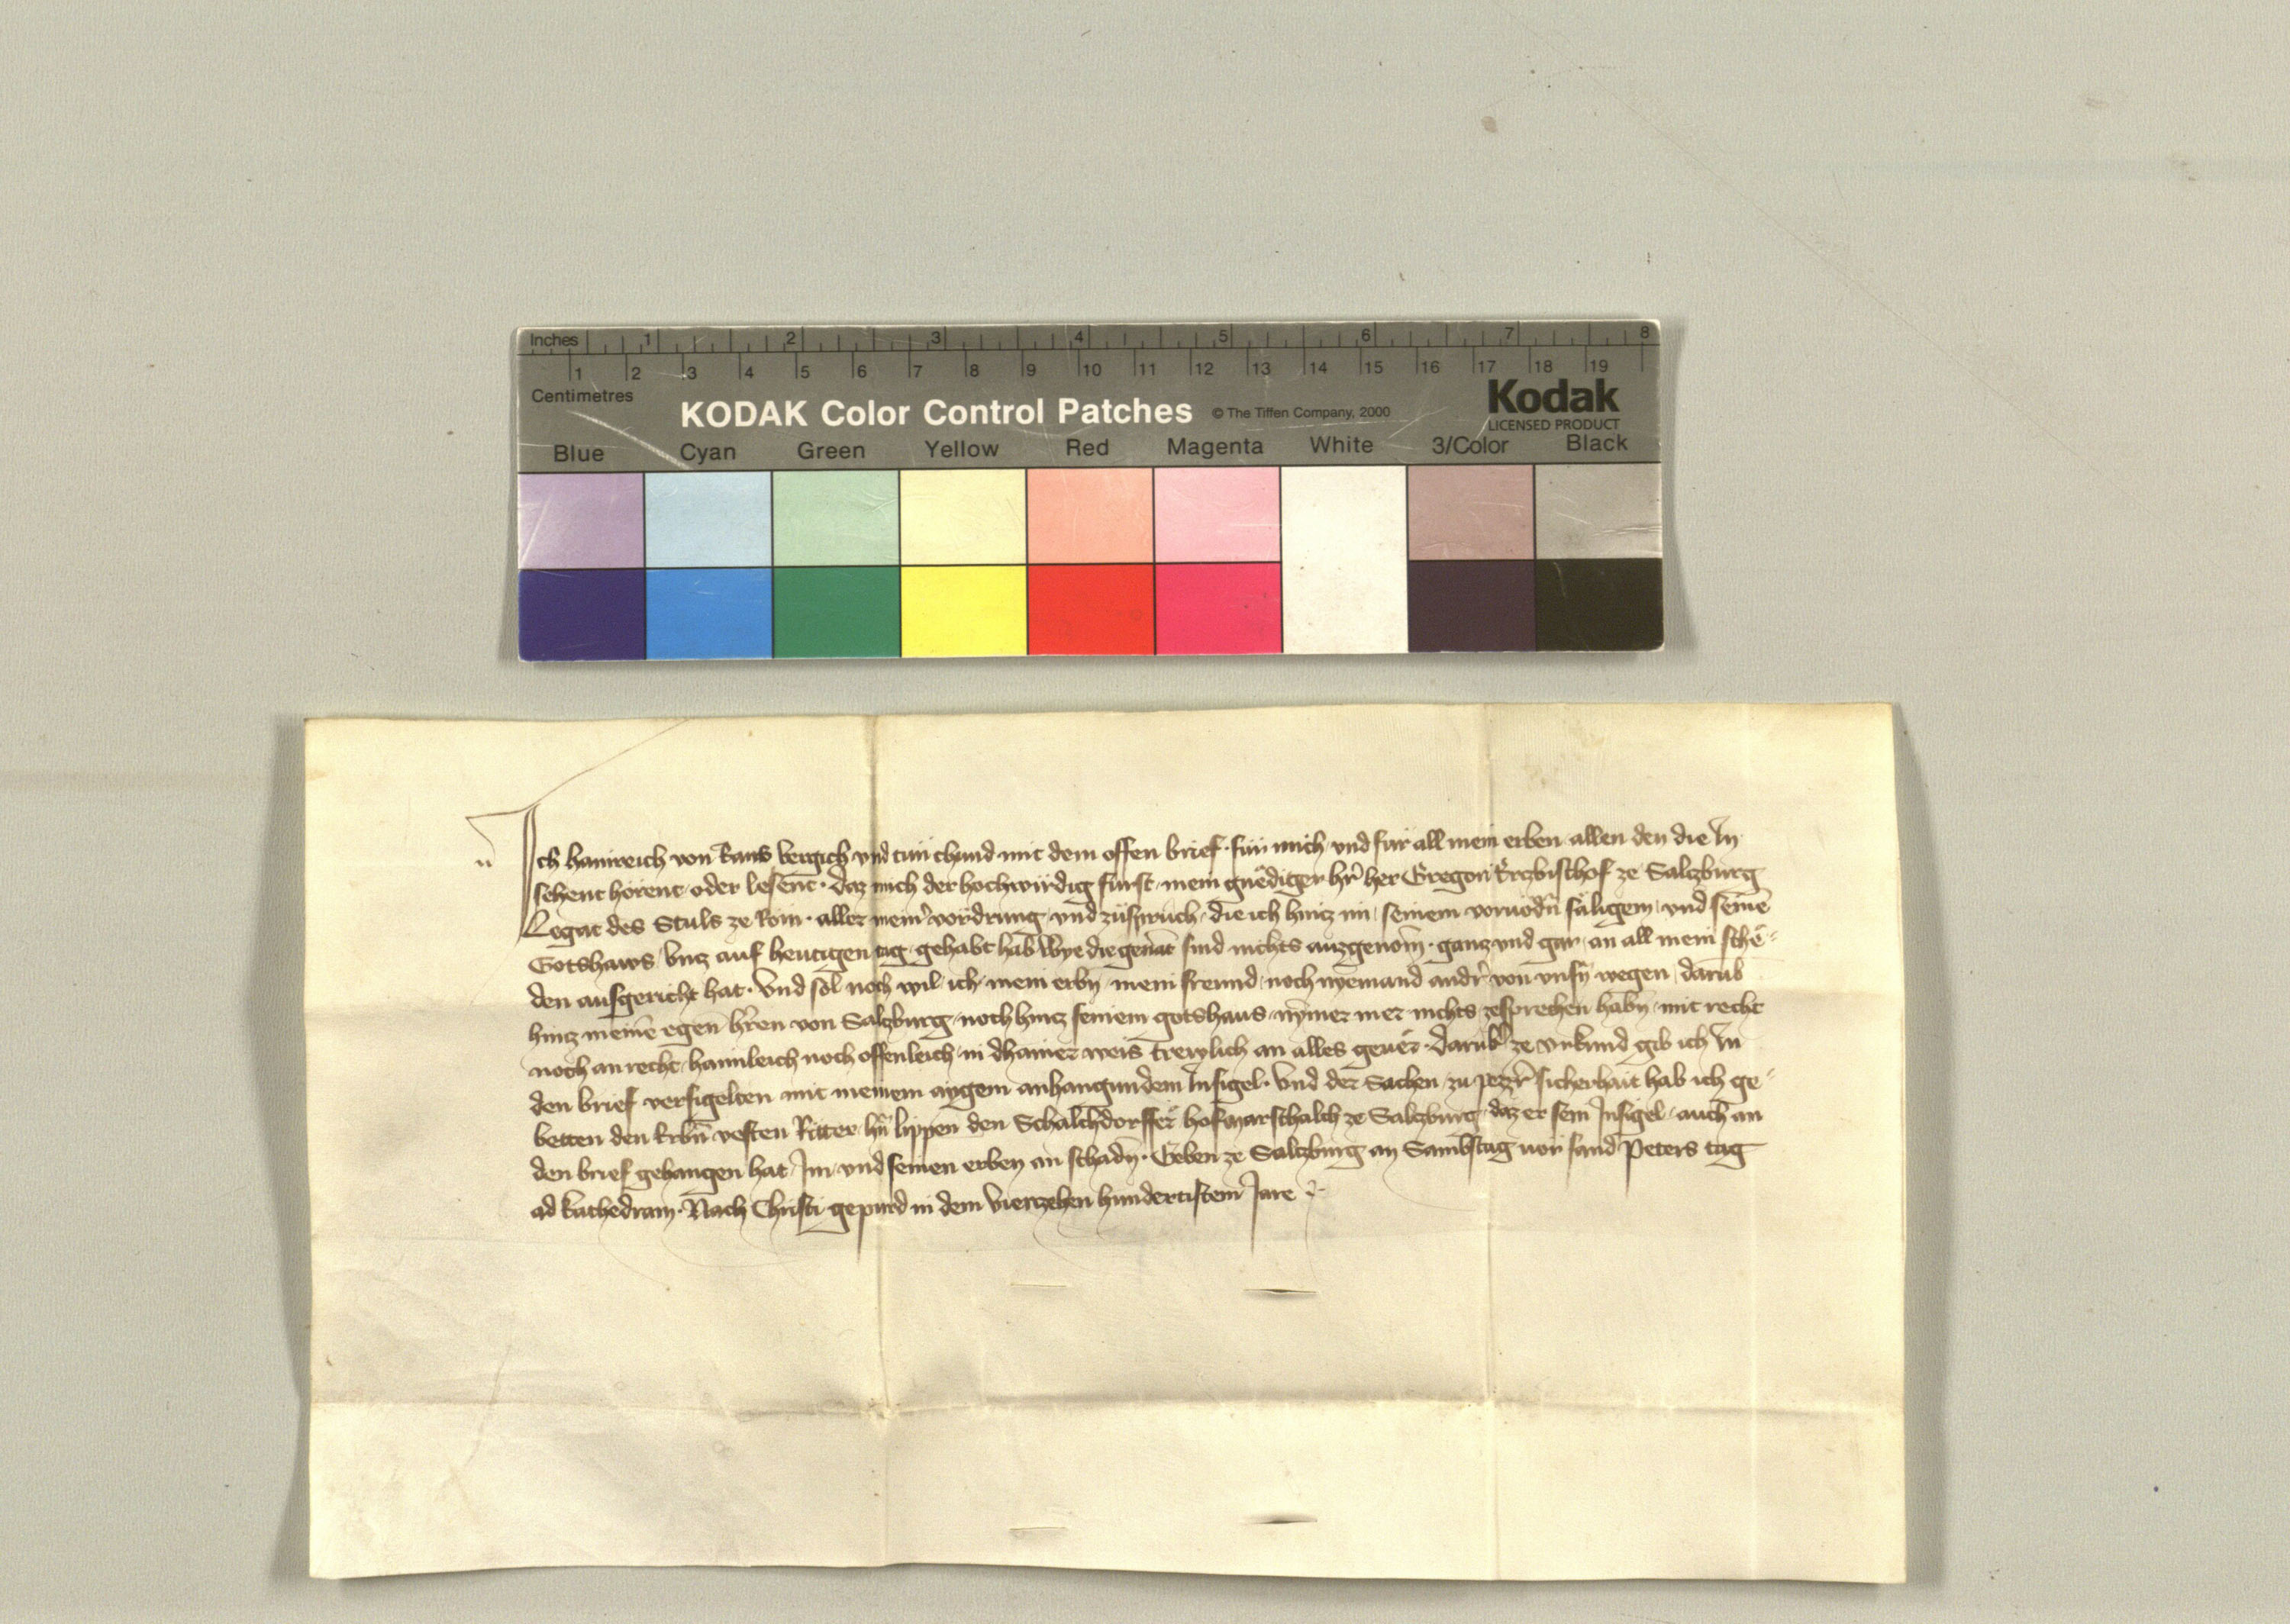 Inches 1 2 3 4 5 6 7 8
1 2 3 4 5 6 7 8 9 10 11 12 13 14 15 16 17 18 19
Centimetres
KODAK Color Control Patches © The Tiffen Company, 2000
Kodak
LICENSED PRODUCT
Blue Cyan Green Yellow Red Magenta White 3/Color Black
Ich hainreich von vergich vnd tun chund mit dem offen brief · für mich vnd für all mein erben allen den die In
sehent hörent oder lesent · daz mich der hochwirdig fürst mein gnediger h̄r her Gregori Erczbischof ze Salczburg
Legat des Stuls ze Rom · aller meinr vordrung vnd züspruch die ich hincz im seinem voruodn̄ säligem vnd seinē
Gotshaws vncz auf heutigen tag gehabt hab wye die genāt sind nichts auzgenom̄ · gancz vnd gar an all mein sche-
den ausgericht hat · Vnd sol noch wil ich mein erbn̄ mein freund noch nyemand andr̄ von vnsn̄ wegen darūb
hincz meinē egen̄ h̄ren von Salczburg noch hincz seinem gotshaus nym̄er mer nichts zesprechen habn̄ mit recht
noch an recht haimleich noch offenleich in dhainer weis trewlich an alles geuer · Darūb ze vrkund gib ich In
den brief versigelten mit meinem aygem anhangundem Insigel · Vnd der Sachen zu pezzr̄ sicherhait hab ich ge-
betten den Erbn̄ vesten Ritter hn̄ lippen den Schalchdorffer hofmarschalch ze Salczburg daz er sein Insigel auch an
den brief gehangen hat Im vnd seinen erben an schadn̄ · Geben ze Salczburg an Sambstag vor sand Peters tag
ad kathedram · Nach Christi gepurd in dem Vierzehen hundertistem Jare